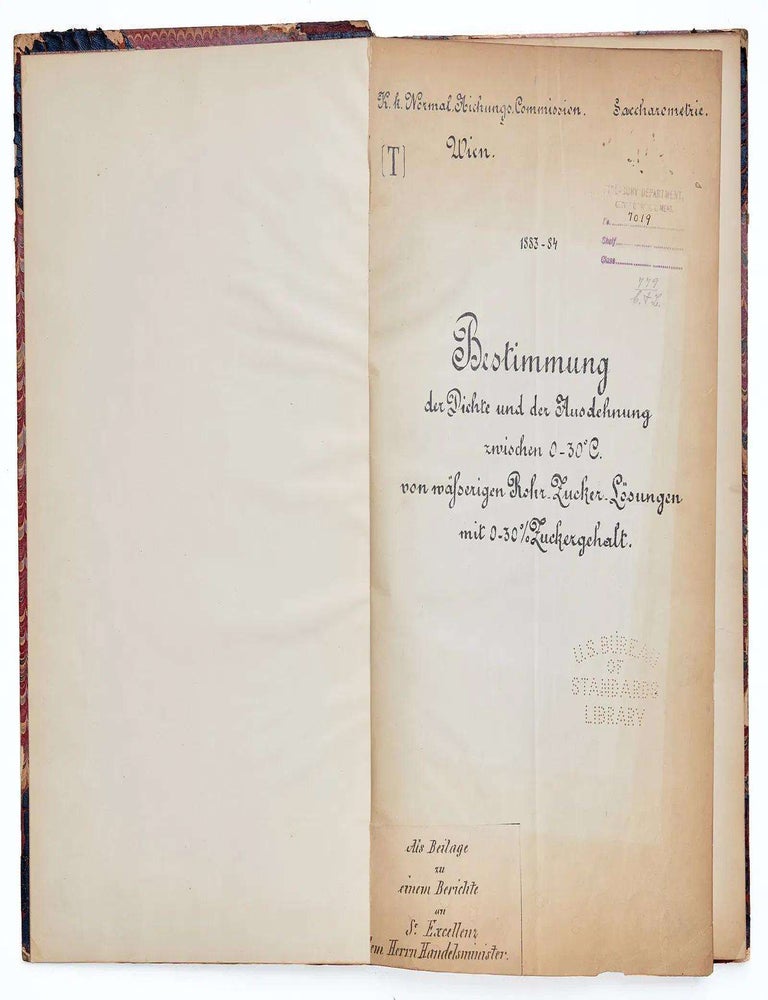 K. k. Normal. Aichungs. Commission. Saccharometrie.
[T] Wien.
TREASURY DEPARTMENT,
No. 7019
1883-84
Shelf
Class
779
Bestimmung
der Dichte und der Ausdehnung
zwischen 0-30°C.
von wäßerigen Rohr-Zucker-Lösungen
mit 0-30% Zuckergehalt.
U.S. BUREAU
OF
STANDARDS
LIBRARY
Als Beilage
zu
einem Berichte
an
Sr. Excellenz
dem Herrn Handelsminister.